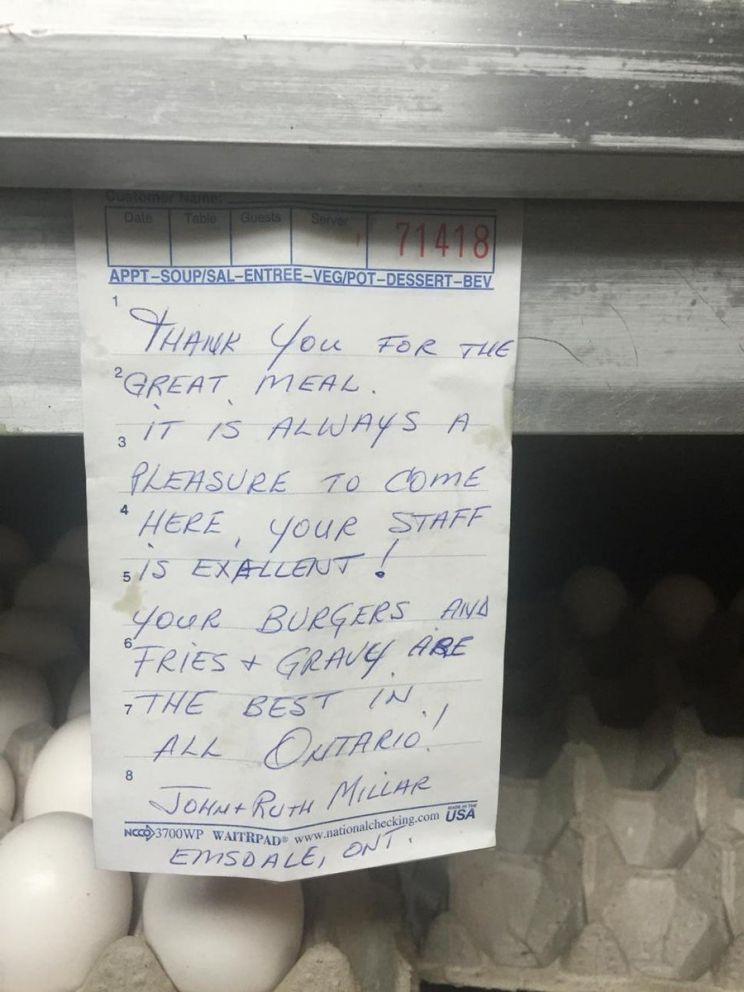 Customer Name:
Date Table Guests Server 71418
APPT-SOUP/SAL-ENTREE-VEG/POT-DESSERT-BEV
1 THANK YOU FOR THE
2 GREAT MEAL.
3 IT IS ALWAYS A
PLEASURE TO COME
4 HERE, YOUR STAFF
5 IS EXALLENT!
YOUR BURGERS AND
6 FRIES + GRAVY ARE
7 THE BEST IN
ALL ONTARIO!
8 JOHN + RUTH MILLAR
NCCO 3700WP WAITRPAD® www.nationalchecking.com MADE IN THE USA
EMSDALE, ONT.